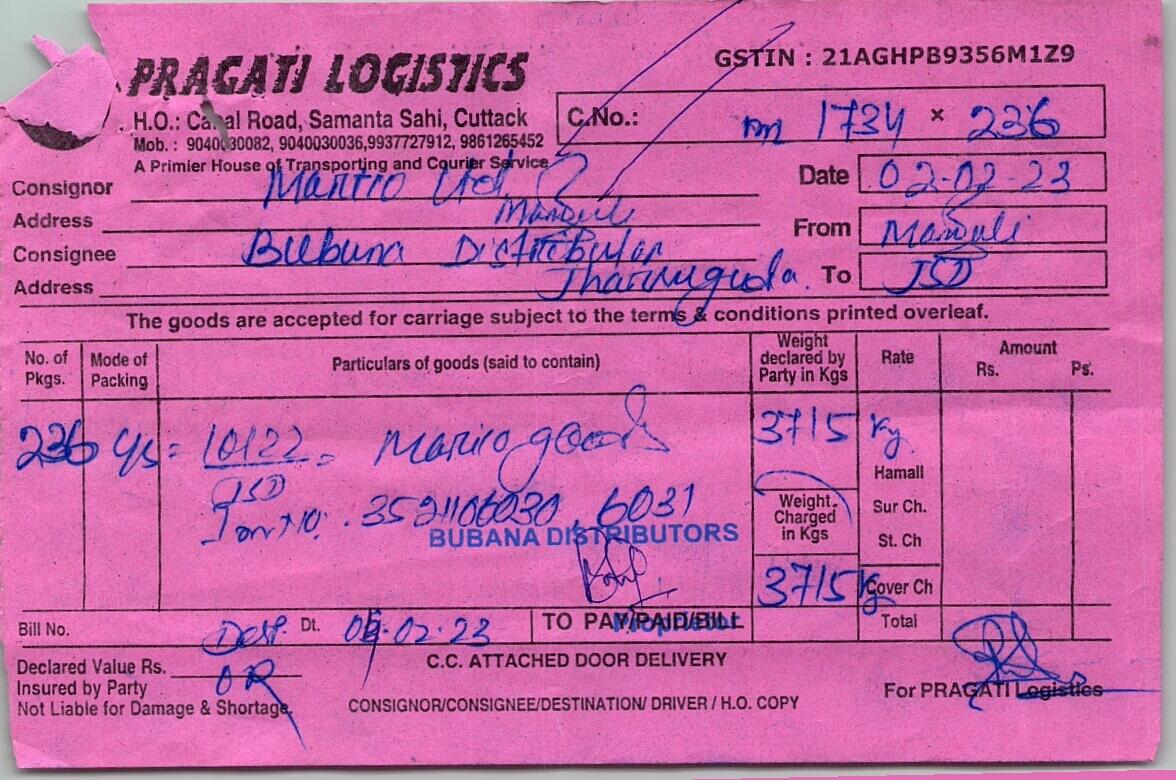 PRAGATI LOGISTICS
GSTIN : 21AGHPB9356M1Z9
H.O.: Canal Road, Samanta Sahi, Cuttack
Mob. : 9040030082, 9040030036,9937727912, 9861265452
A Primier House of Transporting and Courier Service
C.No.: 1734 × 236
Date 02-02-23
Consignor Marico Ltd
Address Manguli
From Manguli
Consignee Bubuna Distributor
To JSD
Address Jharsuguda.
The goods are accepted for carriage subject to the terms & conditions printed overleaf.
No. of Pkgs.
Mode of Packing
Particulars of goods (said to contain)
Weight declared by Party in Kgs
Rate
Amount
Rs. Ps.
236 C/s = 10122 = Marico goods
3715 Kg.
JSD
Hamall
3521106030, 6031
Weight. Charged in Kgs
Sur Ch.
BUBANA DISTRIBUTORS
St. Ch
3715 Kg
Cover Ch
Bill No.
Dt. -02-23
TO PAY/PAID/BILL
Proprietor
Total
Declared Value Rs.
C.C. ATTACHED DOOR DELIVERY
Insured by Party
For PRAGATI Logistics
Not Liable for Damage & Shortage.
CONSIGNOR/CONSIGNEE/DESTINATION/ DRIVER / H.O. COPY